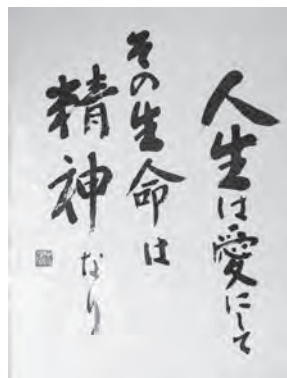 人生は愛にして
その生命は
精神なり